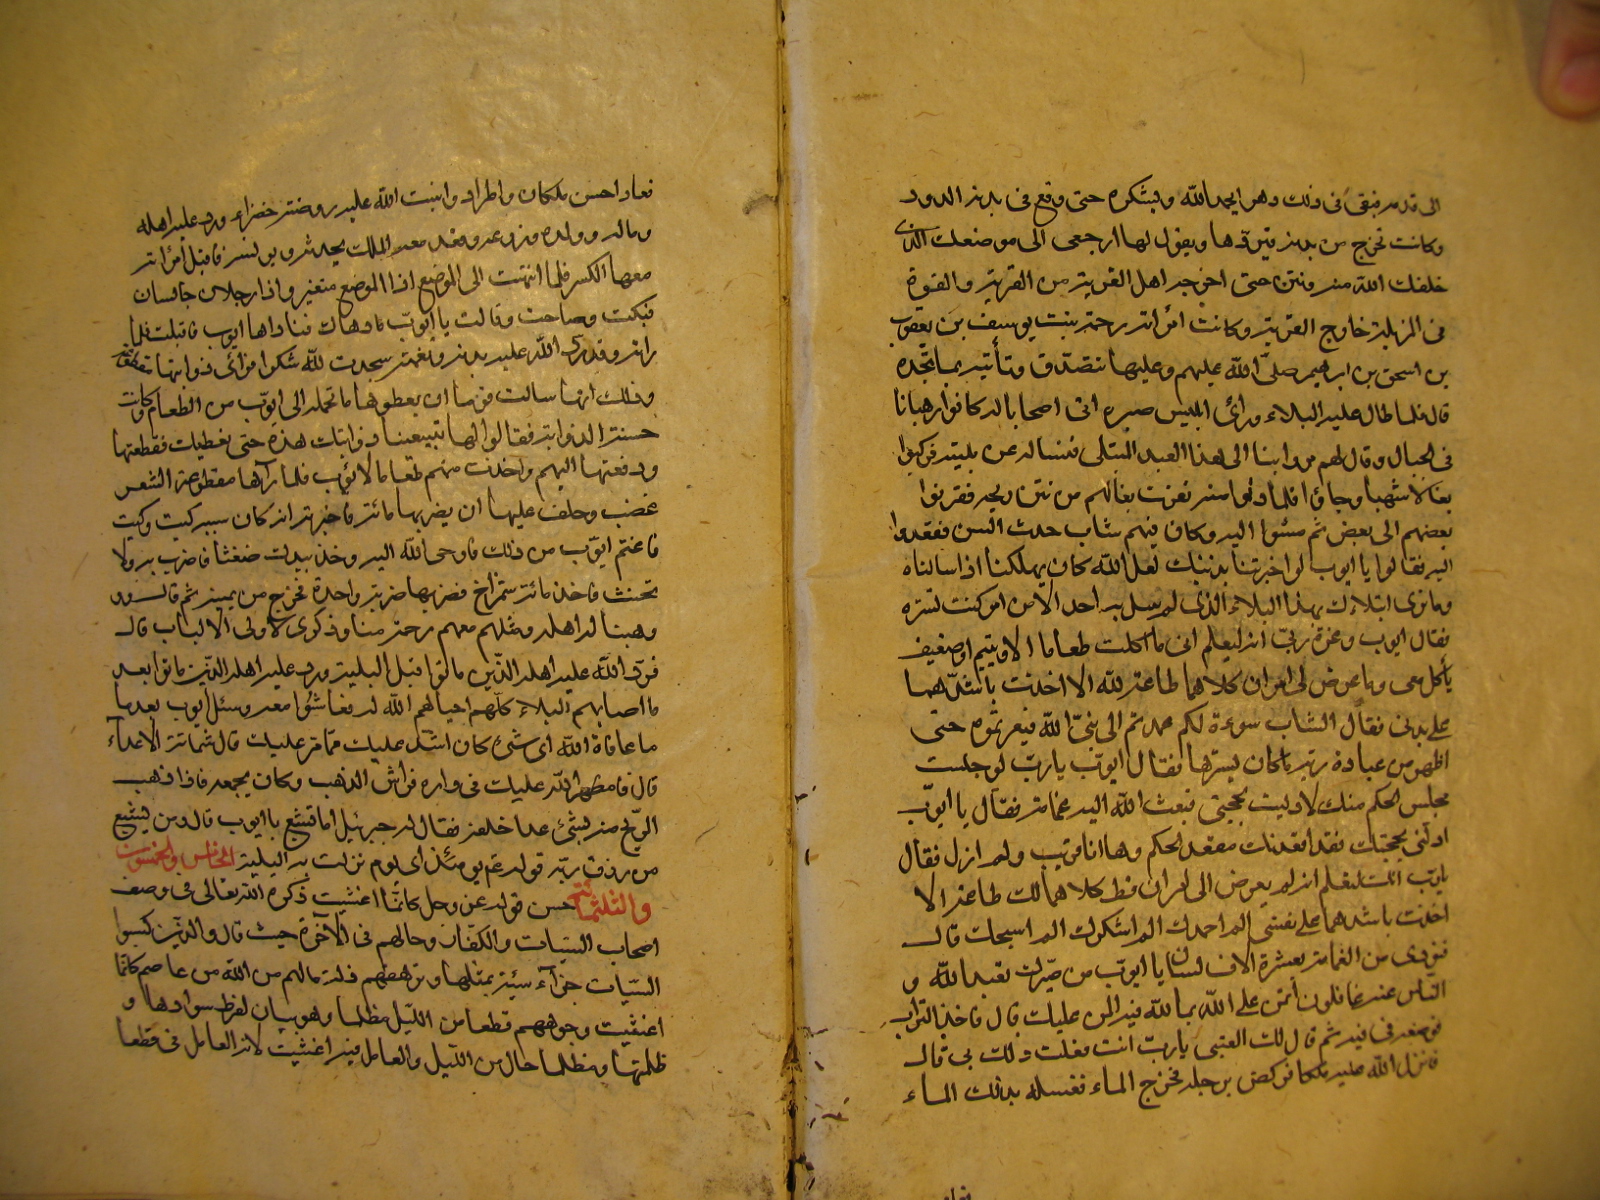 الى قدمه فبقى فى ذلك دهرا يحمد الله ويشكره حتى وقع فى بدنه الدود
وكانت تخرج من بدنه فيردها ويقول لها ارجعى الى موضعك الذى
خلقك الله منه ونتن حتى اخرجه اهل القرية من القرية والقوه
فى المزبلة خارج القرية وكانت امراته رحمة بنت يوسف بن يعقوب
بن اسحق بن ابراهيم صلى الله عليهم وعليها تتصدق وتأتيه بما تجده
قال فلما طال عليه البلاء ورأى ابليس صبره اتى اصحابا له كانوا رهبانا
فى الجبال وقال لهم مروا بنا الى هذا العبد المبتلى فنسأله عن بليته فركبوا
بغالا شهبا وجاؤا فلما دنوا منه نفرت بغالهم من نتن ريحه فقرنوا
بعضهم الى بعض ثم مشوا اليه وكان فيهم شاب حدث السن فقعدوا
اليه فقالوا يا ايوب لو اخبرتنا بذنبك لعل الله كان يهلكنا اذا سالناه
وما نرى ابتلاءك بهذا البلاء الذى لم يبتل به احد الا من امر كنت تستره
فقال ايوب وعزة ربى انه ليعلم انى ما اكلت طعاما الا ويتيم او ضعيف
يأكل معى وما عرض لى امران كلاهما طاعة لله الا اخذت باشدهما
على بدنى فقال الشاب سوءة لكم عمدتم الى نبى الله فعيرتموه حتى
اظهر من عبادة ربه ما كان يسترها فقال ايوب يا رب لو جلست
مجلس الحكم منك لادليت بحجتى فبعث الله اليه غمامة فقال يا ايوب
ادلنى بحجتك فقد اقعدتك مقعد الحكم وها انا قريب ولم ازل فقال
يا رب انك لتعلم انه لم يعرض الى امران قط كلاهما لك طاعة الا
اخذت باشدهما على نفسى الم احمدك الم اشكرك الم اسبحك قال
فنودى من الغمامة بعشرة الاف لسان يا ايوب من صيرك تعبد الله و
الناس عنه غافلون أتمن على الله بما لله فيه المن عليك قال فاخذ التراب
فوضعه فى فيه ثم قال لك العتبى يا رب انت فعلت ذلك بى قال
فانزل الله عليه ملكا فركض برجله فخرج الماء فغسله بذلك الماء
فعاد احسن ما كان واطراه وانبت الله عليه روضة خضراء ورد عليه اهله
وماله وولده وزرعه وقعد معه الملك يحدثه ويونسه فاقبلت امراته
معها الكسر فلما انتهت الى الموضع اذا الموضع متغير واذا رجلان جالسان
فبكت وصاحت وقالت يا ايوب ما دهاك فناداها ايوب فاقبلت فلما
راته وقد رد الله عليه بدنه ونعمته سجدت لله شكرا فرأى ذوابتها مقطوعة
وذلك انها سالت قوما ان يعطوها ما تحمله الى ايوب من الطعام وكانت
حسنة الذوابة فقالوا لها تبيعينا ذوابتك هذه حتى نعطيك فقطعتها
ودفعتها اليهم واخذت منهم طعاما لايوب فلما رآها مقطوعة الشعر
غضب وحلف عليها ان يضربها مائة فاخبرته انه كان سببه كيت وكيت
فاغتم ايوب من ذلك فاوحى الله اليه وخذ بيدك ضغثا فاضرب به ولا
تحنث فاخذ مائة شمراخ فضربها ضربة واحدة فخرج من يمينه ثم قال و
وهبنا له اهله ومثلهم معهم رحمة منا وذكرى لاولى الالباب قال
فرد الله عليه اهله الذين ماتوا قبل البلية ورد عليه اهله الذين ماتوا بعد
ما اصابهم البلاء كلهم احياهم الله له فعاشوا معه وسئل ايوب بعد ما
ما عافاه الله اى شئ كان اشد عليك مما مر عليك قال شماتة الاعداء
قال فامطر الله عليه فى داره فراش الذهب وكان يجمعه فاذا ذهب
الريح منه بشئ عدا خلفه فقال له جبرئيل اما تشبع يا ايوب قال ومن يشبع
من رزق ربه قوله غم يومئذ اى يوم نزلت به البلية الخامس والخمسون
والثلثمائة حسن قوله عز وجل كانما اغشيت ذكره الله تعالى فى وصف
اصحاب السيئات والكفار وحالهم فى الآخرة حيث قال والذين كسبوا
السيئات جزآء سيئة بمثلها وترهقهم ذلة ما لهم من الله من عاصم كانما
اغشيت وجوههم قطعا من الليل مظلما وهو بيان لفرط سوادها و
ظلمتها ومظلما حال من الليل والعامل فيه اغشيت لانه العامل فى قطعا